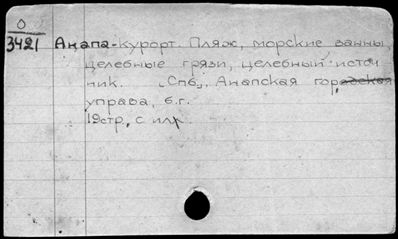 О
3421
Анапа-курорт. Пляж, морские ванны,
целебные грязи, целебный источ
ник. Спб., Анапская городская
управа, б.г.
19стр, с ил.